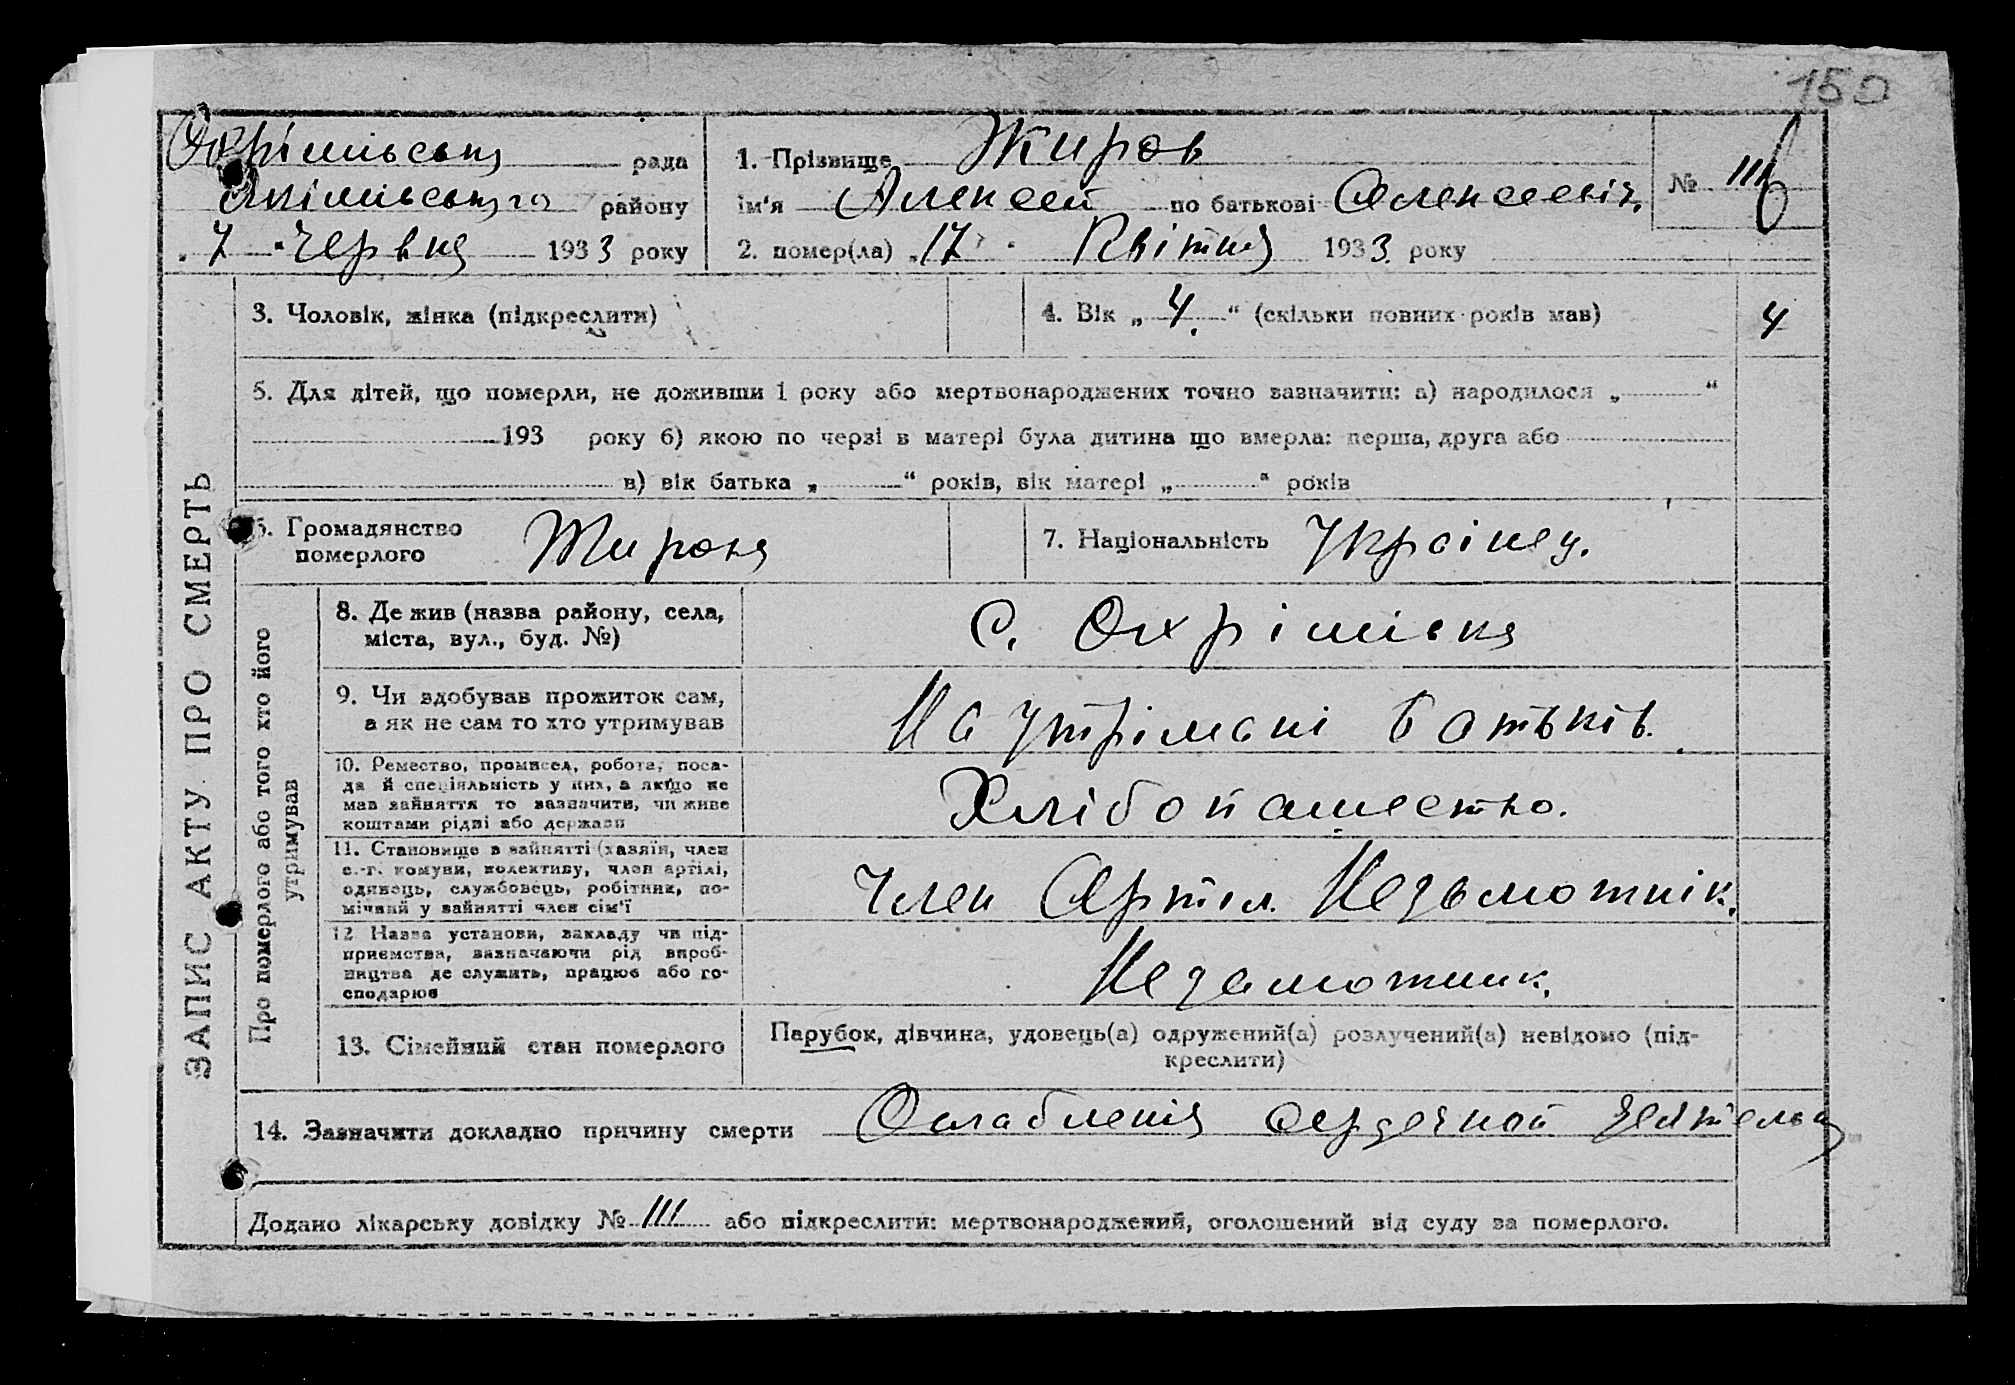 150
Охрімівська рада
Якімівського району
„ 7 " Червня 1933 року
1. Прізвище Жиров
ім'я Алексей по батькові Олексеевіч.
2. помер(ла) „17" Квітня 1933. року
№ 116
ЗАПИС АКТУ ПРО СМЕРТЬ
3. Чоловік, жінка (підкреслити)
4. Вік „ 4. “ (скільки повних років мав)
4
5. Для дітей, що померли, не доживши 1 року або мертвонароджених точно зазначити: а) народилося „ “
193 року б) якою по черзі в матері була дитина що вмерла: перша, друга або
в) вік батька „ “ років, вік матері „ “ років
6. Громадянство
померлого
7. Національність Украінец.
Про померлого або того хто його
утримував
8. Де жив (назва району, села,
міста, вул., буд. №)
С. Охрімівка
9. Чи здобував прожиток сам,
а як не сам то хто утримував
На утрімані батьків.
10. Ремество, промисел, робота, поса-
да й спеціяльність у них, а якщо не
мав зайняття то зазначити, чи живе
коштами рідні або держави
Хлібопашество.
11. Становище в зайнятті (хазяїн, член
с.-г. комуни, колективу, член артілі,
одинець, службовець, робітник, по-
мічний у зайнятті член сім'ї
Член Артел. Незаможнік.
12 Назва установи, закладу чи під-
приємства, зазначаючи рід вироб-
ництва де служить, працює або го-
сподарює
Незаможник.
13. Сімейний стан померлого
Парубок, дівчина, удовець(а) одружений(а) розлучений(а) невідомо (під-
креслити)
14. Зазначити докладно причину смерти Ослабленія сердечной деятельн
Додано лікарську довідку № 111 або підкреслити: мертвонароджений, оголошений від суду за померлого.